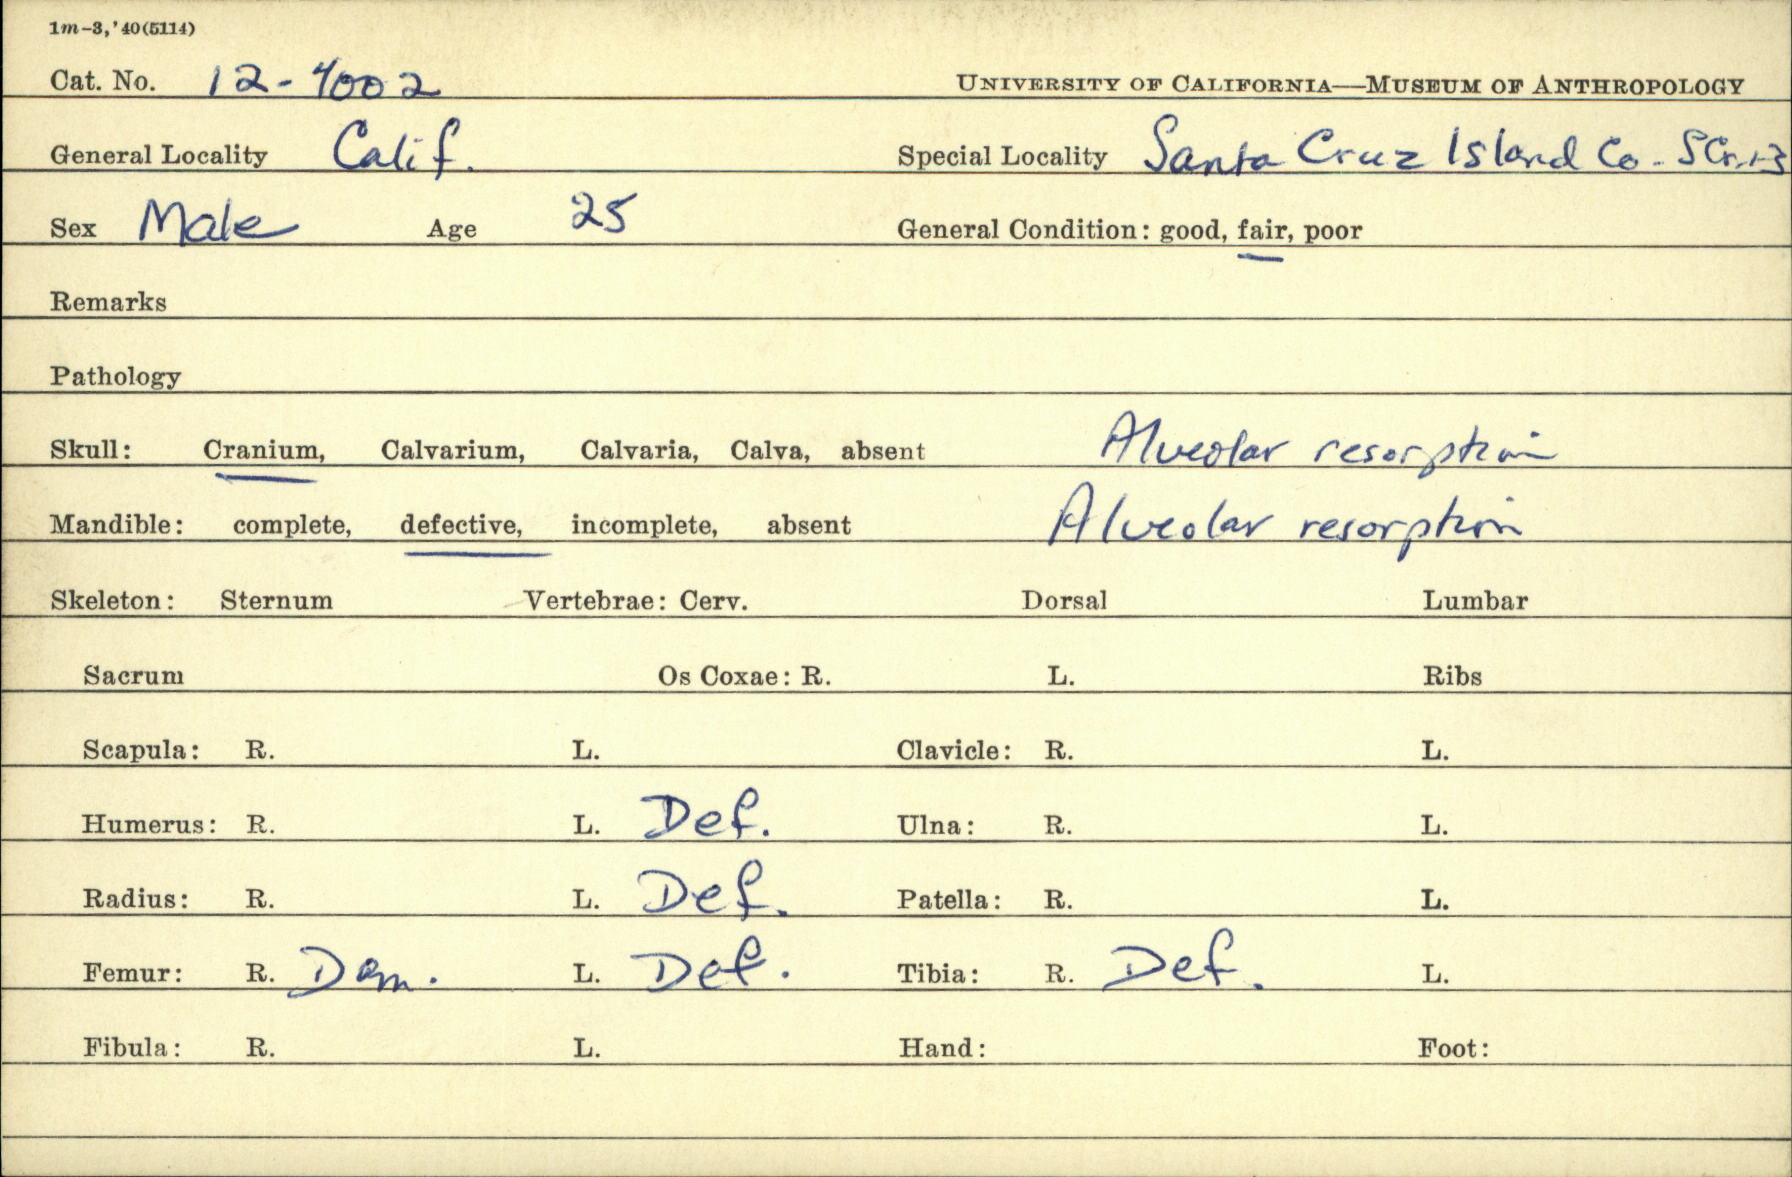 1m-3,'40(5114)
Cat. No. 12-4002 UNIVERSITY OF CALIFORNIA—MUSEUM OF ANTHROPOLOGY
General Locality Calif. Special Locality Santa Cruz Island Co. SCr.-3
Sex Male Age 25 General Condition: good, fair, poor
Remarks
Pathology
Skull: Cranium, Calvarium, Calvaria, Calva, absent Alveolar resorption
Mandible: complete, defective, incomplete, absent Alveolar resorption
Skeleton: Sternum Vertebrae: Cerv. Dorsal Lumbar
Sacrum Os Coxae: R. L. Ribs
Scapula: R. L. Clavicle: R. L.
Humerus: R. L. Def. Ulna: R. L.
Radius: R. L. Def. Patella: R. L.
Femur: R. Dam. L. Def. Tibia: R. Def. L.
Fibula: R. L. Hand: Foot: